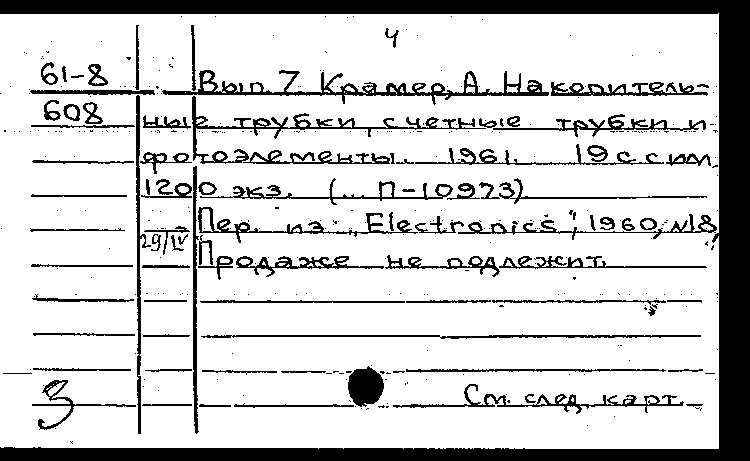 4
61-8 Вып. 7. Крамер, А. Накопитель-
608 ные трубки, счетные трубки и
фотоэлементы. 1961. 19 с с илл
1200 экз. (... П-10973)
Пер. из "Electronics", 1960, №18,
29/IV Продаже не подлежит.
3 См. след. карт.